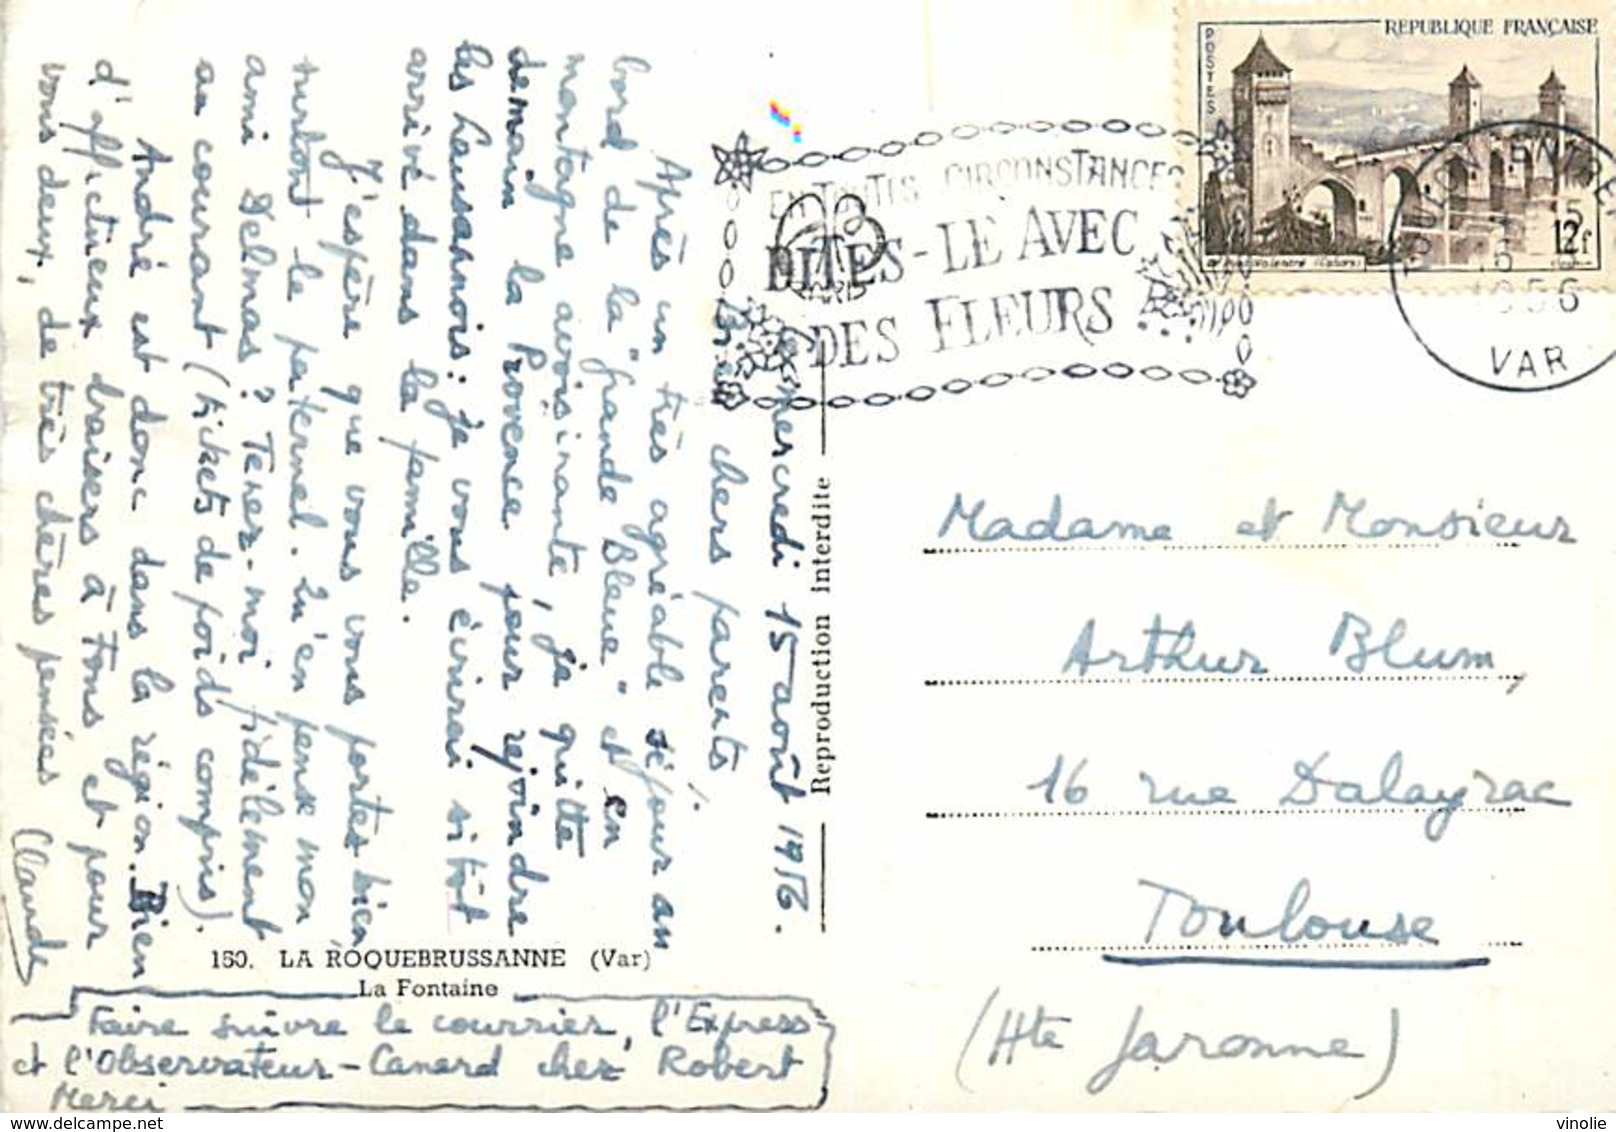 REPUBLIQUE FRANÇAISE
POSTES
12f
EN TOUTES CIRCONSTANCES
DITES-LE AVEC
DES FLEURS
PARIS
15
1956
VAR
Mercredi 15 août 1956.
Bien chers parents
Après un très agréable séjour au
bord de la "grande Bleue" et en
montagne avoisinante, je quitte
demain la Provence pour rejoindre
les Lausannois: je vous écrirai sitôt
arrivé dans la famille.
J'espère que vous vous portez bien,
surtout le paternel. Qu'en pense mon
ami Delmas? Tenez-moi fidèlement
au courant (tickets de poids compris).
André est donc dans la région. Bien
d'affectueux baisers à Fons et pour
vous deux, de très chères pensées
Claude
Reproduction interdite
150. LA ROQUEBRUSSANNE (Var)
La Fontaine
Faire suivre le courrier, l'Express
et l'Observateur - Canard chez Robert
Merci
Madame et Monsieur
Arthur Blum,
16 rue Dalayrac
Toulouse
(Hte Garonne)
vinolie